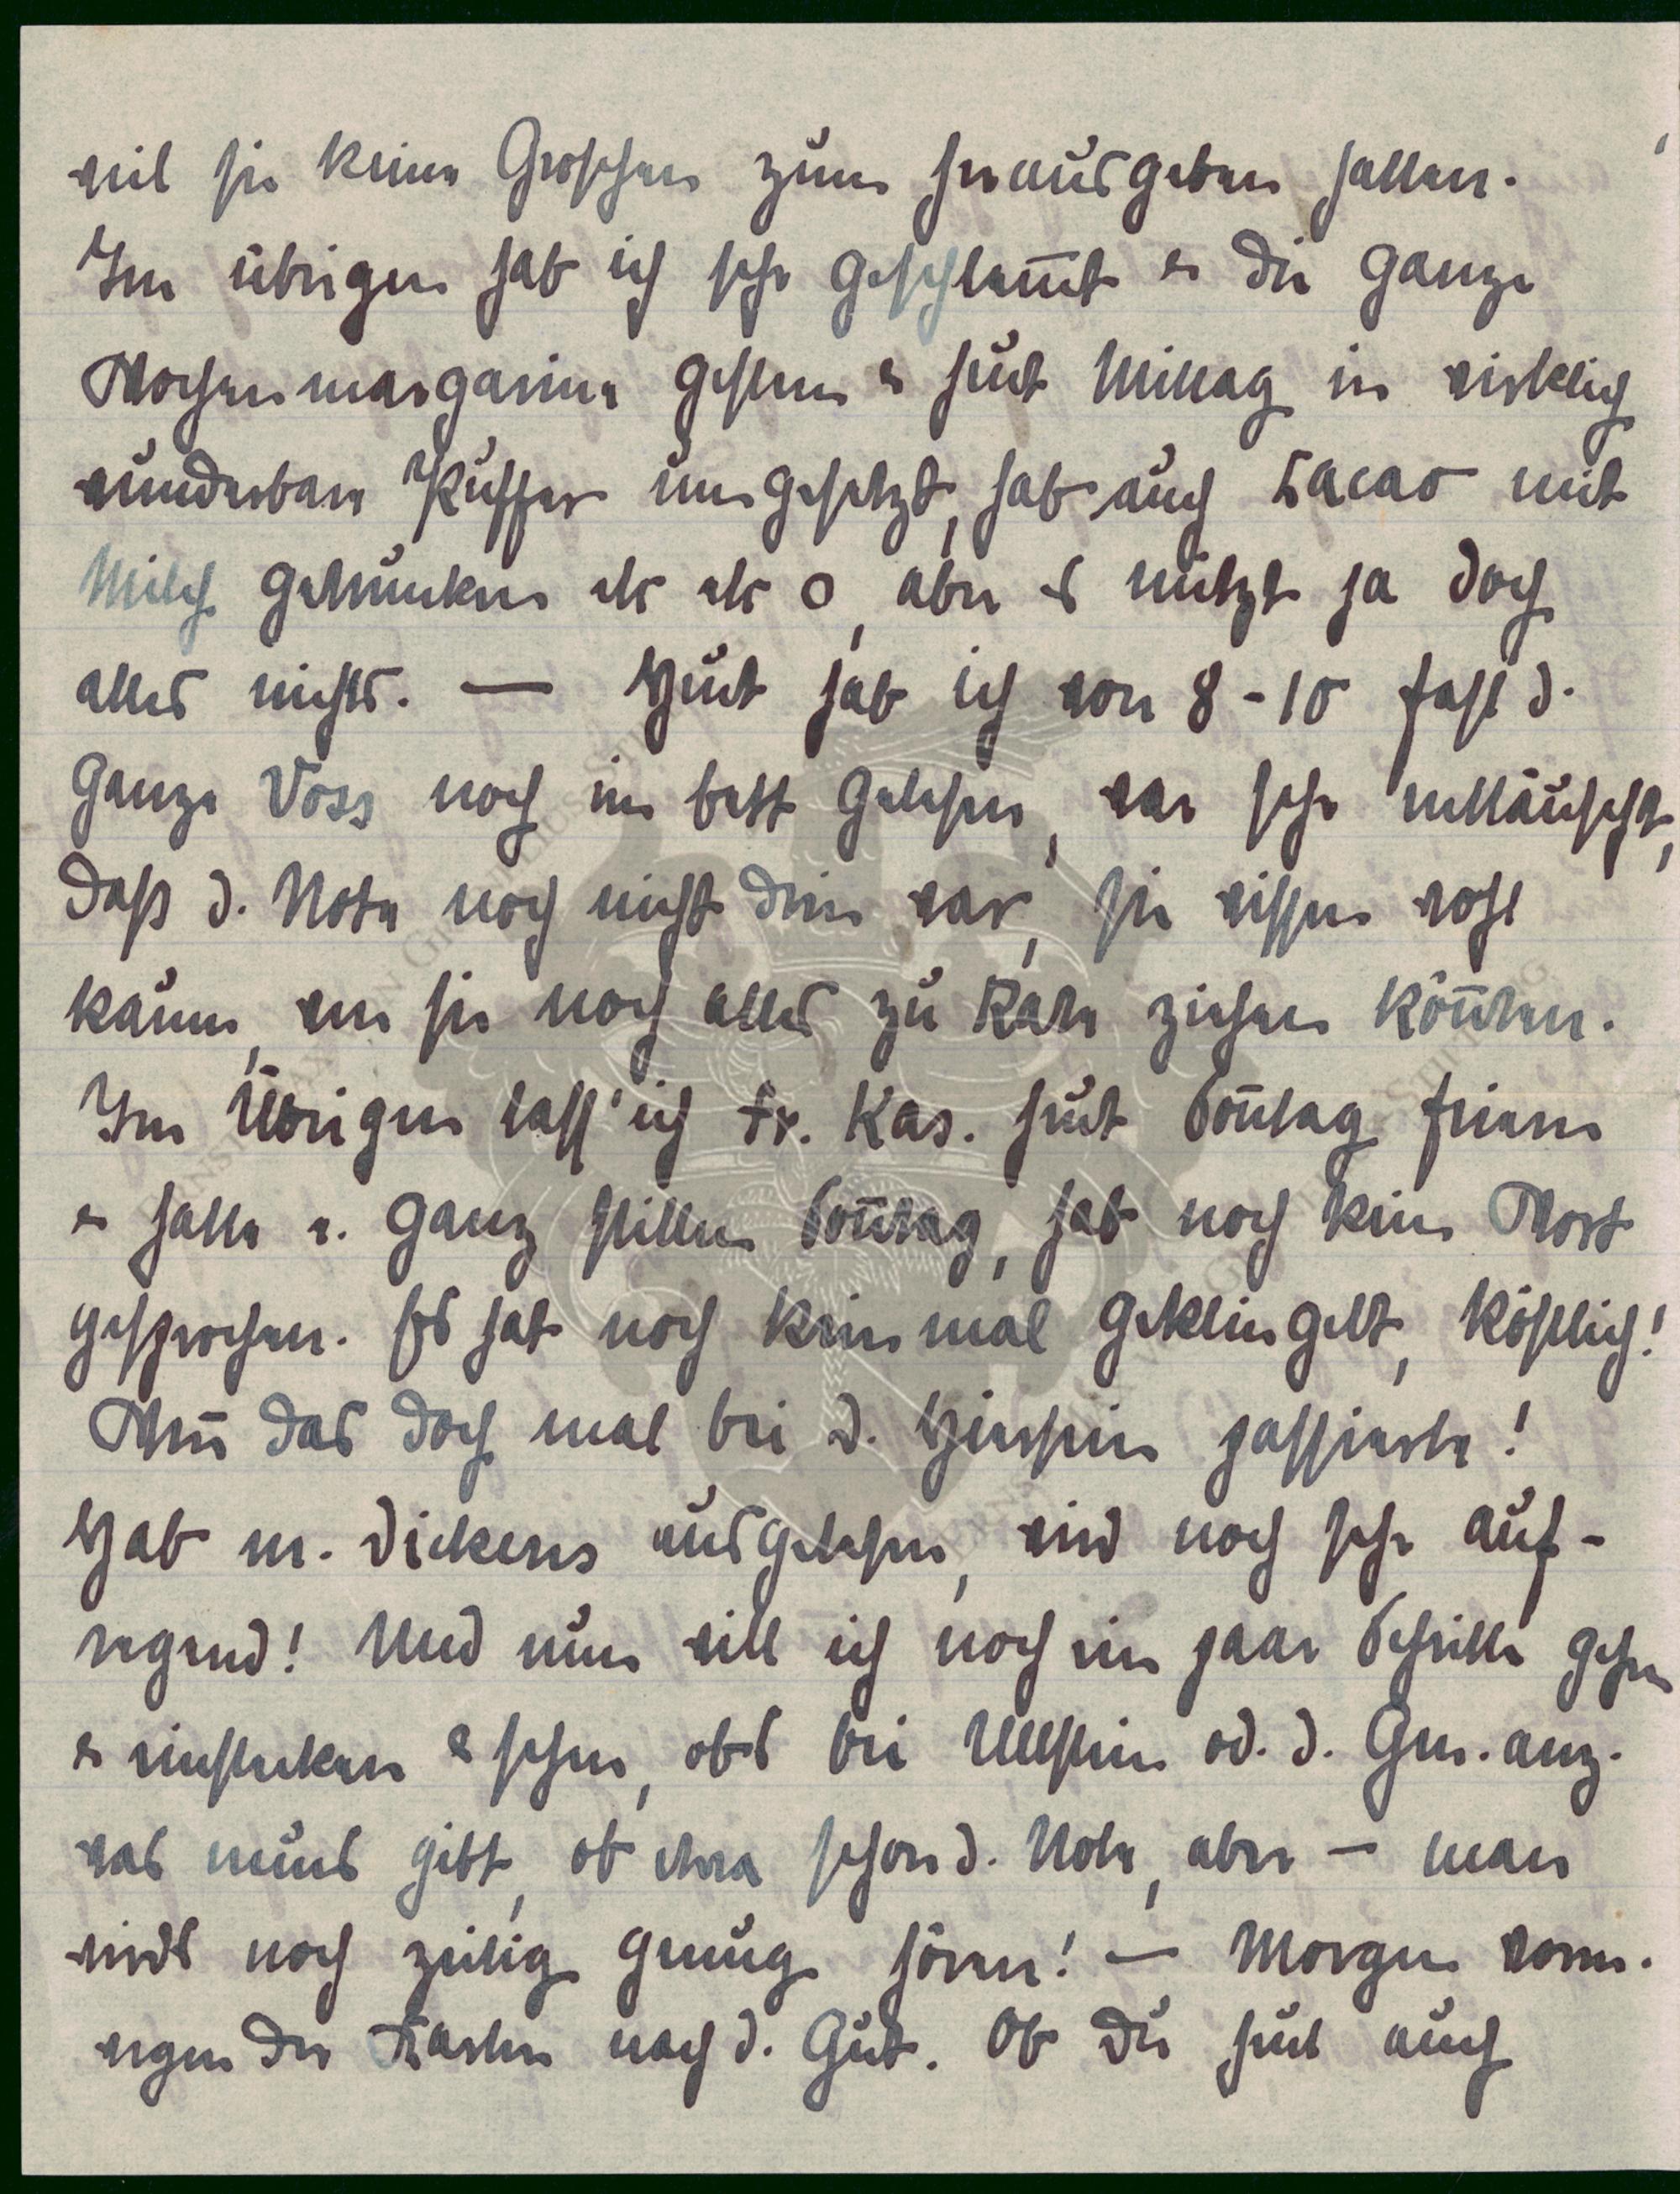 weil sie keine Groschen zum herausgeben hatten.
Im übrigen hab ich sehr geschlemmt u die ganze
Wochenmargarine gestern u heut Mittag in wirklich
wunderbare Puffer umgesetzt, hab auch Kacao mit
Milch getrunken etc etc o, aber es nützt ja doch
alles nichts. — Heut hab ich von 8-10 fast d.
ganze Voss noch im bett gelesen, war sehr enttäuscht,
daß d. Note noch nicht drin war, sie wissen wohl
kaum, wen sie noch alles zu Rate ziehen kön̄ten.
Im Übrigen lass' ich Fr. Kas. heut Son̄tag feiern
u halte e. ganz stillen Son̄tag, hab noch kein Wort
gesprochen. Es hat noch keinmal geklingelt, köstlich!
Wen̄ das doch mal bei d. Hiersein passierte!
Hab m. Dickens ausgelesen, wird noch sehr auf-
regend! Und nun will ich noch ein paar Schritte gehen
u einstecken u sehen, obs bei Ullstein od. d. Gen. anz.
was neues gibt, ob etwa schon d. Note, aber – man
wirds noch zeitig genug hören! — Morgen vorm.
wegen der Karten nach d. Gut. Ob Du heut auch